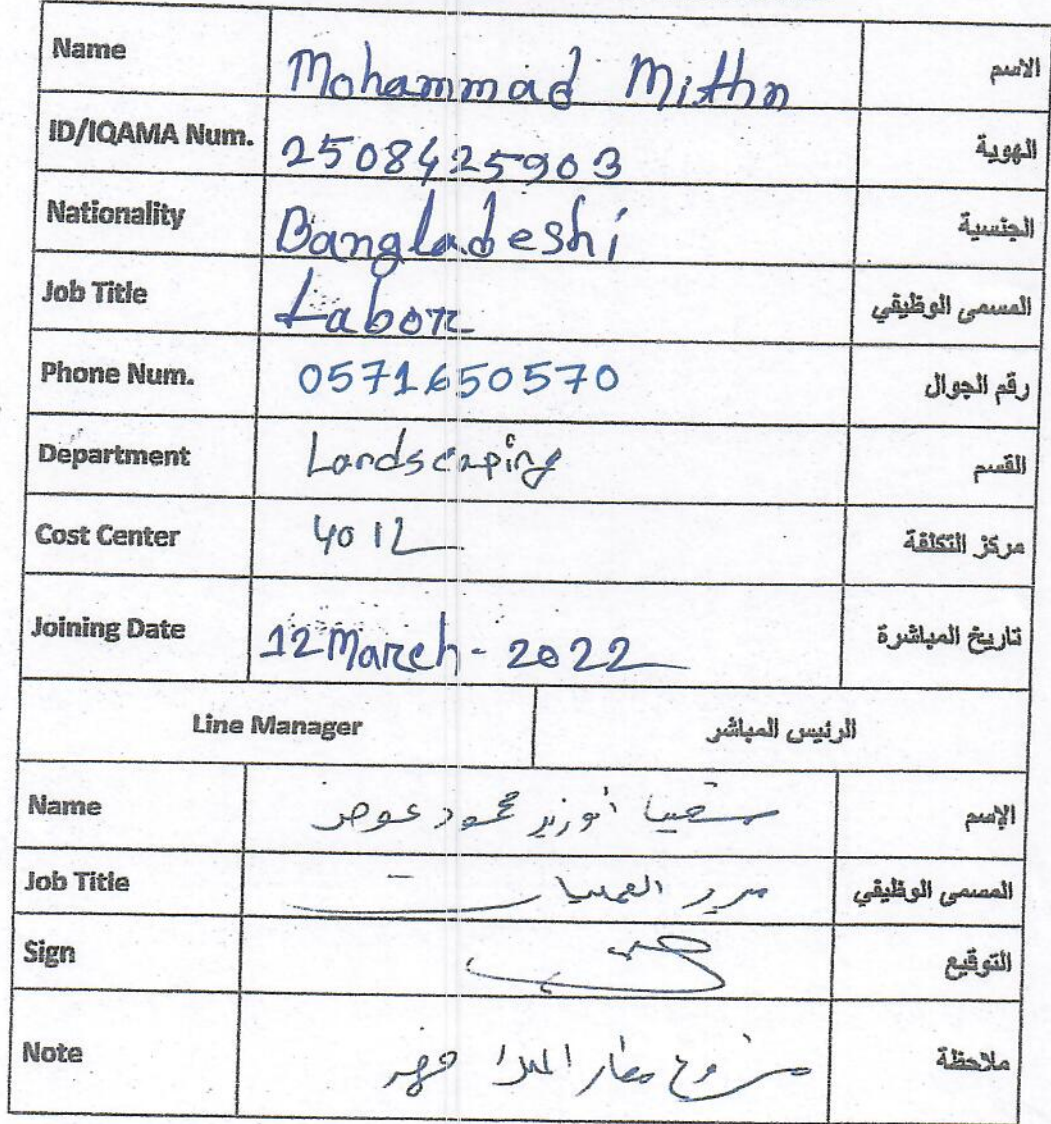 Name Mohammad Mithn الاسم
ID/IQAMA Num. 2508425903 الهوية
Nationality Bangladeshi الجنسية
Job Title Labor المسمى الوظيفي
Phone Num. 0571650570 رقم الجوال
Department Landscaping القسم
Cost Center 4012 مركز التكلفة
Joining Date 12 March - 2022 تاريخ المباشرة
Line Manager الرئيس المباشر
Name محمود عوض الإسم
Job Title مدير العمليات المسمى الوظيفي
Sign التوقيع
Note مشروع مطار الملك فهد ملاحظة